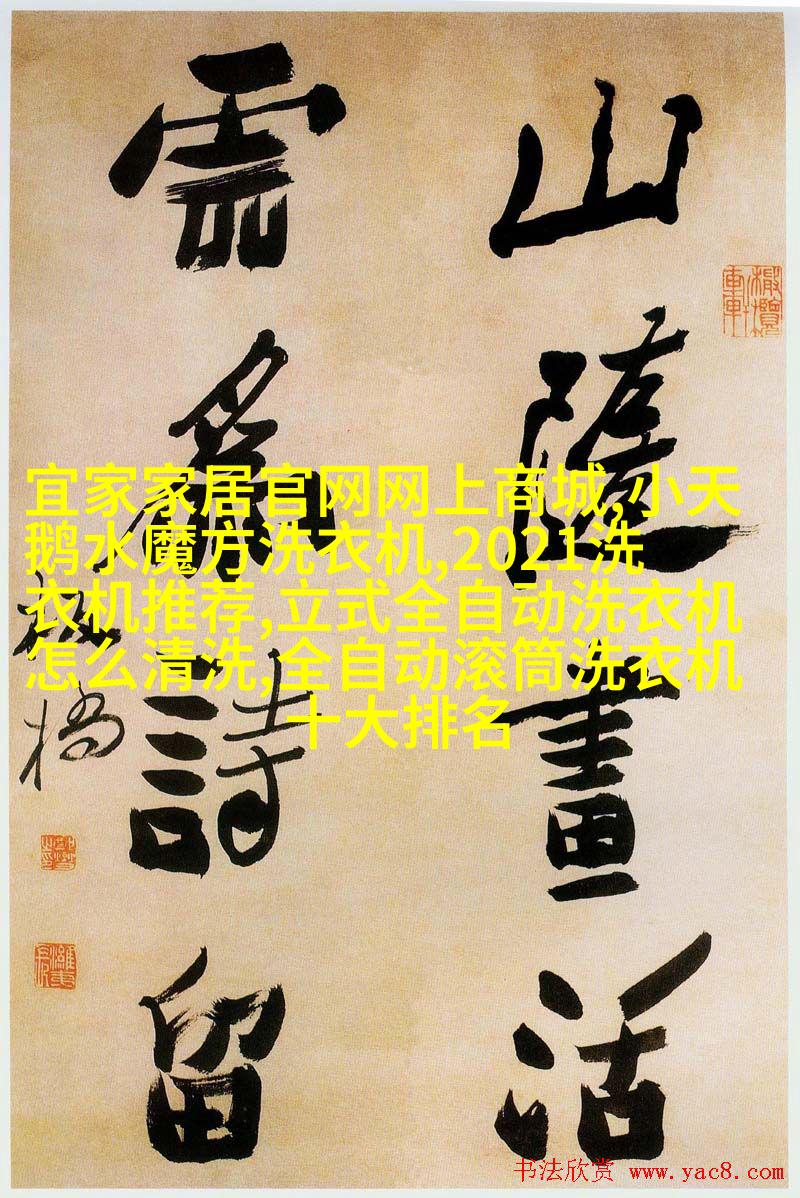 山隨畫活
雲爲詩留
板橋
宜家家居官网网上商城,小天
鹅水魔方洗衣机,2021洗
衣机推荐,立式全自动洗衣机
怎么清洗,全自动滚筒洗衣机
十大排名
书法欣赏 www.yac8.com